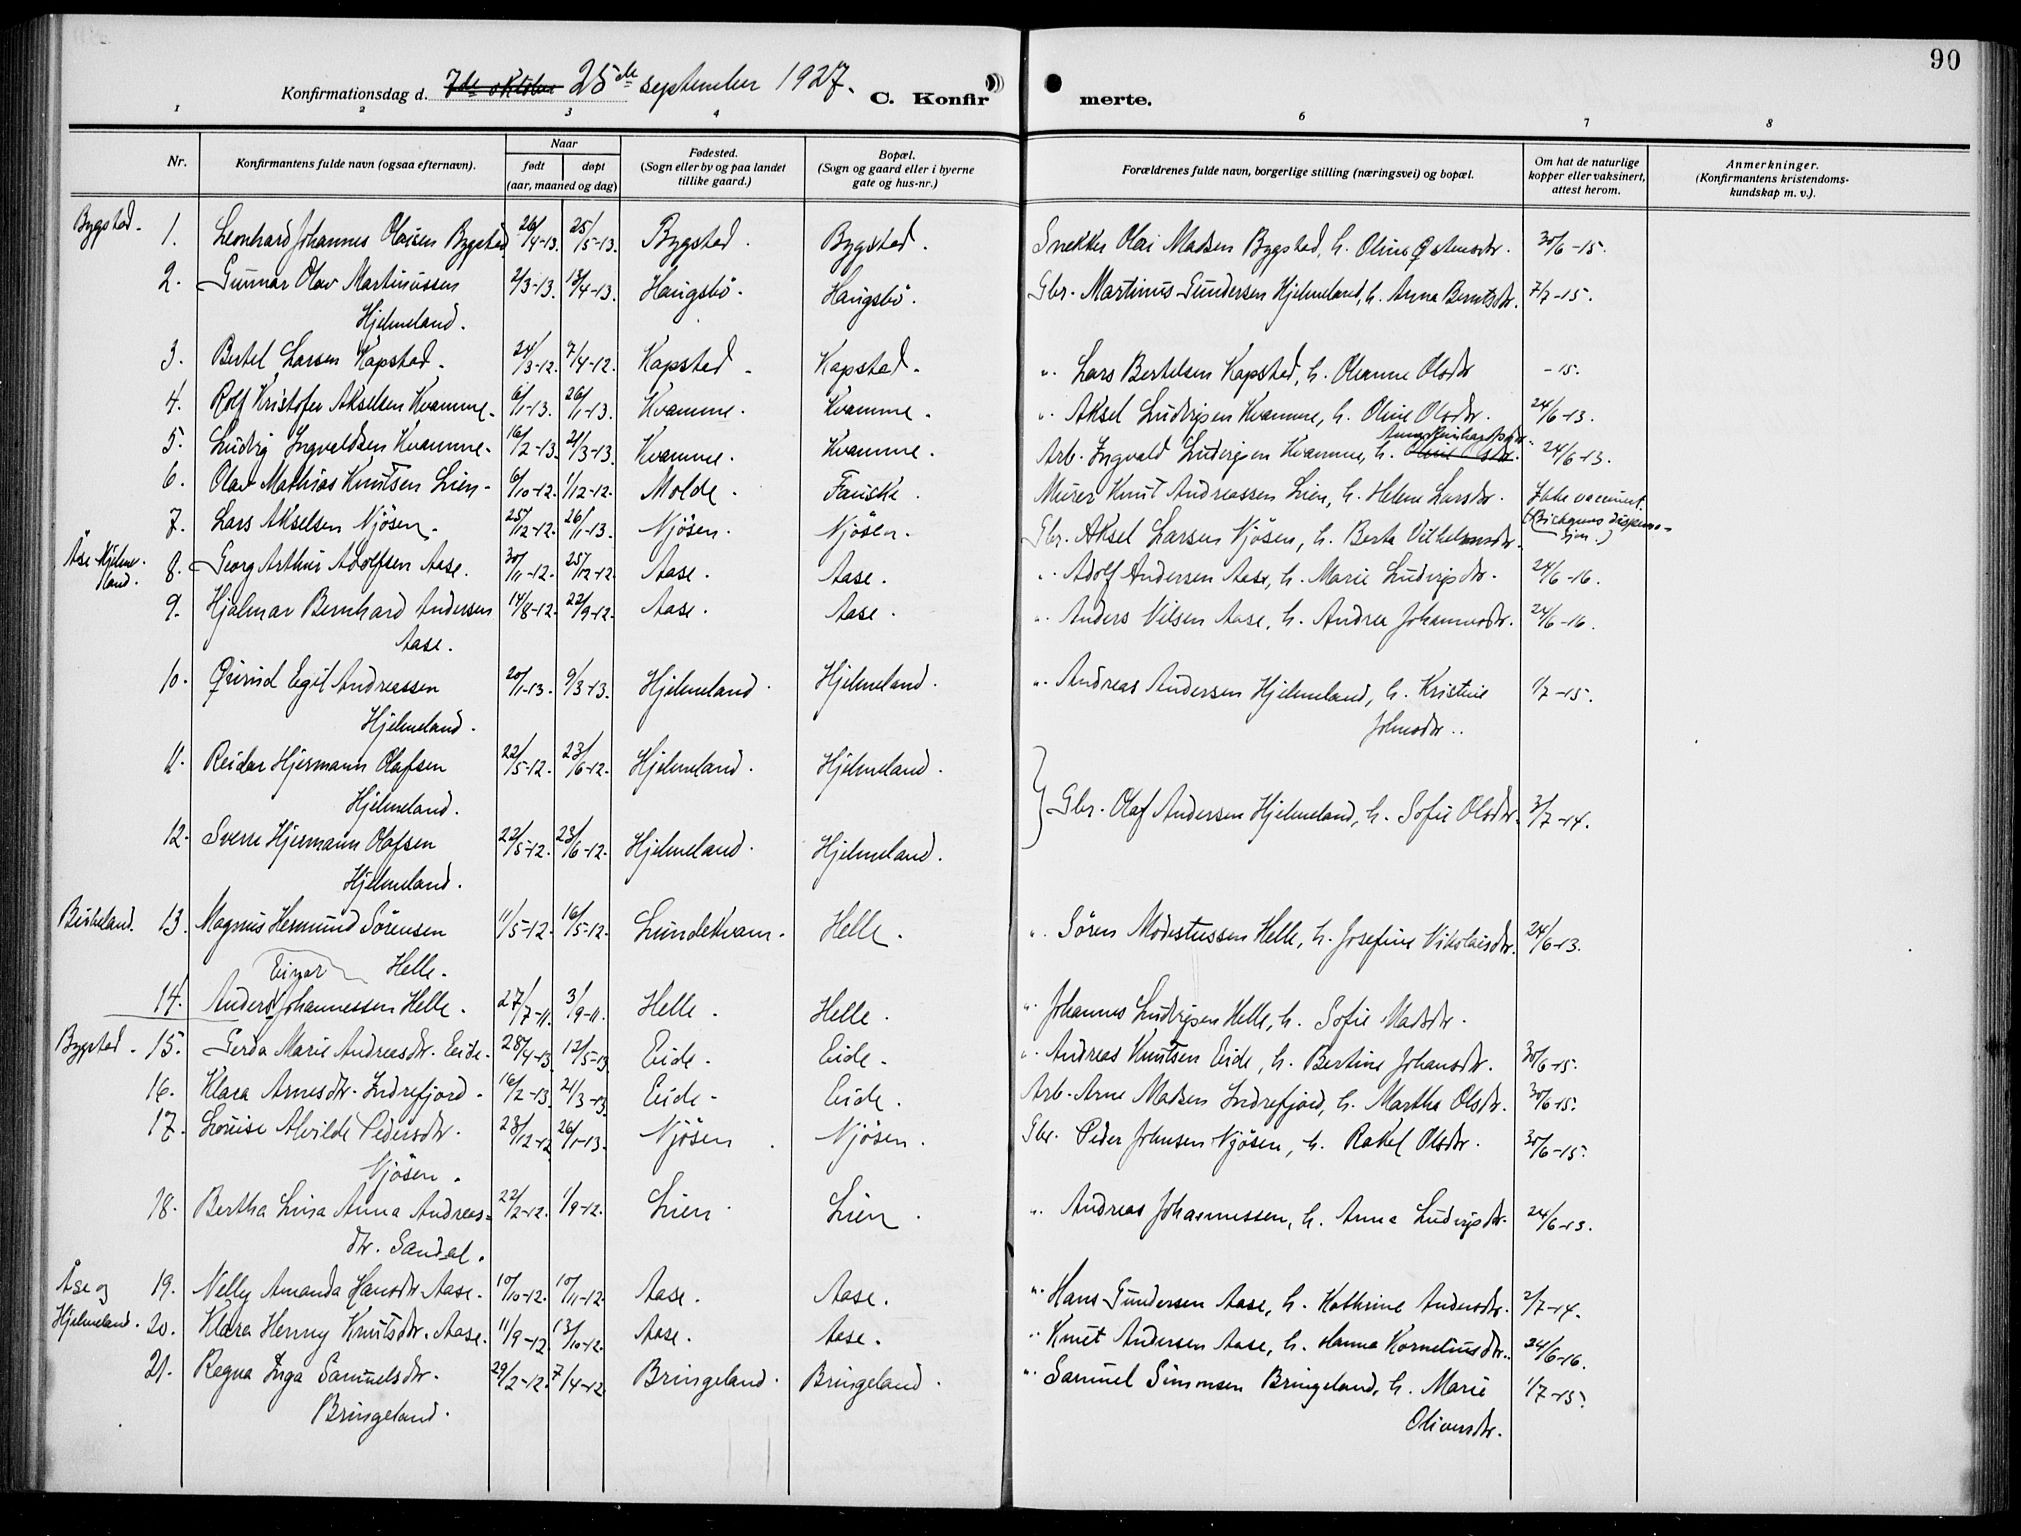 90
Konfirmationsdag d. 7de oktober 25de september 1927. C. Konfirmerte.
1 2 3 4 6 7 8
Nr. Konfirmantens fulde navn (ogsaa efternavn). Naar født døpt (aar, maaned og dag) Fødested. (Sogn eller by og paa landet tillike gaard.) Bopæl. (Sogn og gaard eller i byerne gate og hus-nr.) Forældrenes fulde navn, borgerlige stilling (næringsvei) og bopæl. Om hat de naturlige kopper eller vaksinert, attest herom. Anmerkninger. (Konfirmantens kristendomskundskap m. v.).
Bygstad. 1. Leonhard Johannes Olaisen Bygstad 26/4-13. 25/5-13. Bygstad. Bygstad. Snekker Olai Madsen Bygstad, h. Oline Østensdr. 30/6-15.
2. Gunnar Olav Martinussen 2/3-13. 13/4-13. Haugsbö. Haugsbö. Gbr. Martinus Gundersen Hjelmeland, h. Anna Berntsdr. 7/7-15.
Hjelmeland.
3. Bertel Larsen Kapstad. 24/3-12. 7/4-12. Kapstad. Kapstad. " Lars Bertelsen Kapstad, h. Oleanne Olsdr -15.
4. Rolf Kristofer Akselsen Kvamme. 6/1-13. 26/1-13. Kvamme. Kvamme. " Aksel Ludvigsen Kvamme, h. Oline Olsdr. 24/6-13.
5. Ludvig Ingvaldsen Kvamme. 16/2-13. 24/3-13. Kvamme. Kvamme. Arb. Ingvald Ludvigsen Kvamme, h. Oline Olsdr. 24/6-13.
6. Olav Mathias Knutsen Lien. 6/10-12. 1/12-12. Molde. Fauske. Murer Knut Andreassen Lien, h. Helene Larsdr. Ikke vaccinert.
7. Lars Akselsen Njösen. 25/12-12. 26/1-13. Njösen. Njösen. Gbr. Aksel Larsen Njösen, h. Berta Vilhelmsdr. (Biskopens dispensasjon.)
Åse-Hjelmeland. 8. Georg Arthur Adolfsen Aase. 30/11-12. 25/12-12. Aase. Aase. " Adolf Andersen Aase, h. Marie Ludvigsdr. 24/6-16.
9. Hjalmar Bernhard Andersen 14/8-12. 22/9-12. Aase. Aase. " Anders Nilsen Aase, h. Andrea Johannesdr. 24/6-16.
Aase.
10. Øivind Egil Andreassen 20/1-13. 9/3-13. Hjelmeland. Hjelmeland. " Andreas Andersen Hjelmeland, h. Kristine 1/7-15.
Hjelmeland. Johnsdr.
11. Reidar Hjermann Olafsen 22/5-12. 23/6-12. Hjelmeland. Hjelmeland.
Hjelmeland. } Gbr. Olaf Andersen Hjelmeland, h. Sofie Olsdr. 3/7-14.
12. Sverre Hjermann Olafsen 22/5-12. 23/6-12. Hjelmeland. Hjelmeland.
Hjelmeland.
Birkeland. 13. Magnus Hermund Sörensen 11/5-12. 16/5-12. Lundekvam. Helle. " Sören Modestussen Helle, h. Josefine Nikolaisdr. 24/6-13.
Einar Helle.
14. Anders Johannessen Helle. 27/7-11. 3/9-11. Helle. Helle. " Johannes Ludvigsen Helle, h. Sofie Madsdr.
Bygstad. 15. Gerda Marie Andreasdr. Eide. 28/4-13. 12/5-13 Eide. Eide. " Andreas Knutsen Eide, h. Bertine Johansdr. 30/6-15.
16. Klara Arnesdtr. Indrefjord. 16/2-13. 24/3-13. Eide. Eide. Arb. Arne Madsen Indrefjord, h. Martha Olsdr. 30/6-15.
17. Louise Alvilde Pedersdtr. 28/12-12 26/1-13. Njösen. Njösen. Gbr. Peder Johnsen Njösen, h. Rakel Olsdr. 30/6-15.
Njösen.
18. Bertha Lina Anna Andreas- 22/2-12. 1/9-12. Lien. Lien. " Andreas Johannessen, h. Anna Ludvigsdr. 24/6-13.
dtr. Sandal.
Åse og 19. Nelly Amanda Hansdtr. Aase. 10/10-12. 10/11-12. Aase. Aase. " Hans Gundersen Aase, h. Kathrine Andersdr. 2/7-14.
Hjelmeland. 20. Klara Henny Knutsdtr. Aase. 11/9-12. 13/10-12. Aase. Aase. " Knut Andersen Aase, h. Hanna Korneliusdr. 24/6-16.
21. Ragna Inga Samuelsdtr. 29/2-12. 7/4-12 Bringeland. Bringeland. " Samuel Simonsen Bringeland, h. Marie 1/7-15.
Bringeland. Oliversdtr.